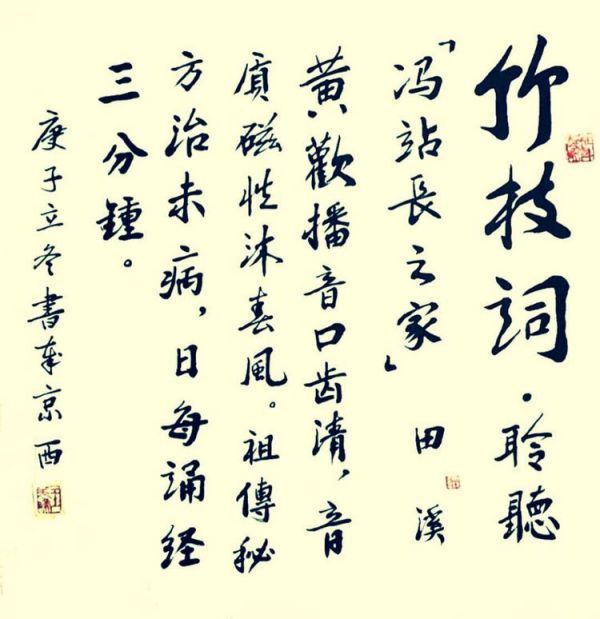 竹枝詞·聆聽
「冯站長之家」 田溪
黄歡播音口齿清，音
質磁性沐春風。祖傳秘
方治未病，日每誦经
三分鍾。
庚子立冬書於京西